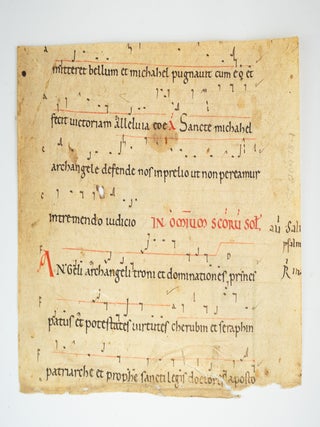 mitteret bellum et michahel pugnauit cum eo et
fecit uictoriam Alleluia eoe A Sancte michahel
archangele defende nos in prelio ut non pereamus
in tremendo iudicio IN OMIUM SCORU SOL
ANGeli archangeli troni et dominationes, princi
patus et potestates uirtutes cherubin et seraphin
patriarche et prophe sancti legis doctores aposto